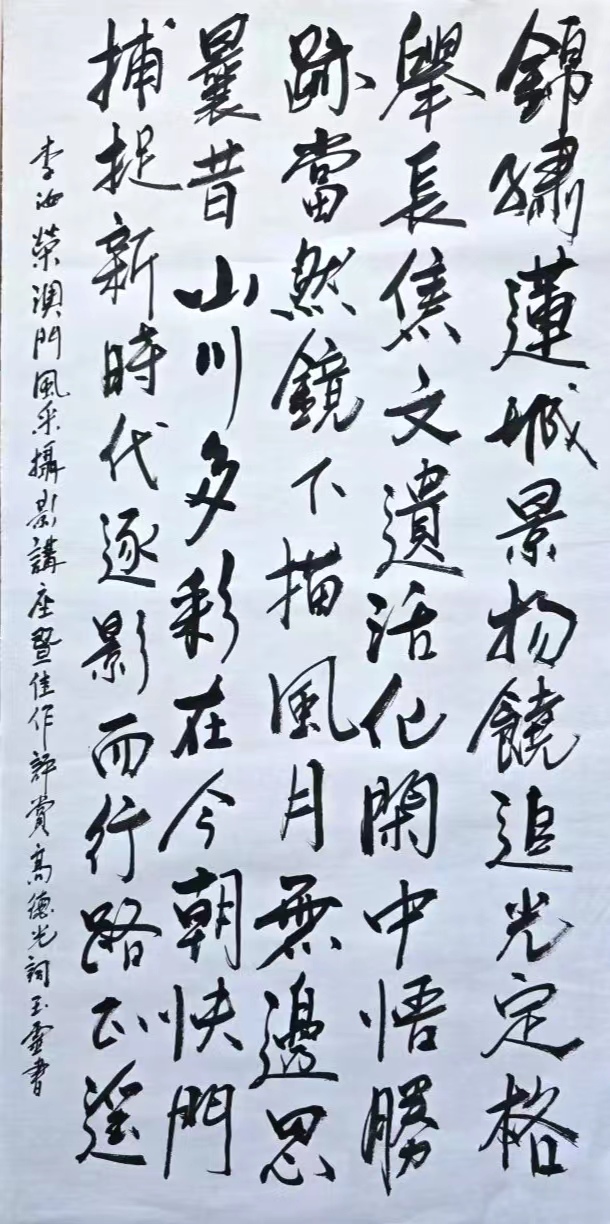 錦繡蓮城景物饒追光定格
舉長焦文遺活化閑中悟勝
跡當然鏡下描風月無邊思
曩昔山川多彩在今朝快門
捕捉新時代逐影而行路正遥
李汝榮澳門風采攝影講座暨佳作評賞高德光詞玉靈書